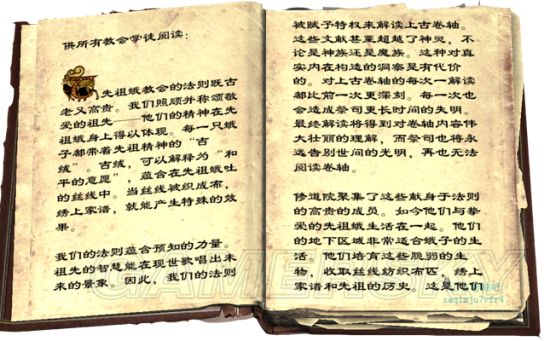 供所有教会学徒阅读：
先祖蛾教会的法则既古
老又高贵。我们照顾并称颂敬
爱的祖先——他们的精神在先
祖蛾身上得以体现。每一只蛾
子都带着先祖精神的“吉
绒”。吉绒，可以解释为“和
平的意愿”，蕴含在先祖蛾吐
的丝线中。当丝线被织成布，
绣上家谱，就能产生特殊的效
果。
我们的法则蕴含预知的力量。
祖先的智慧能在现世歌唱出未
来的景象。因此，我们的法则
被赋予特权来解读上古卷轴。
这些文献甚至超越了神灵，不
论是神族还是魔族。这种对真
实内在构造的洞察是有代价
的。对上古卷轴的每一次解读
都比前一次更深刻。每一次也
会造成祭司更长时间的失明。
最终解读将得到对卷轴内容伟
大壮丽的理解，而祭司也将永
远告别世间的光明，再也无法
阅读卷轴。
修道院聚集了这些献身于法则
的高贵的成员。如今他们与挚
爱的先祖蛾生活在一起。他们
的地下区域非常适合蛾子的生
活。他们培育这些脆弱的生
物，收取丝线纺织布匹，绣上
家谱和先祖的历史。这是他们
GAMERSKY
zaqimju7vfr4